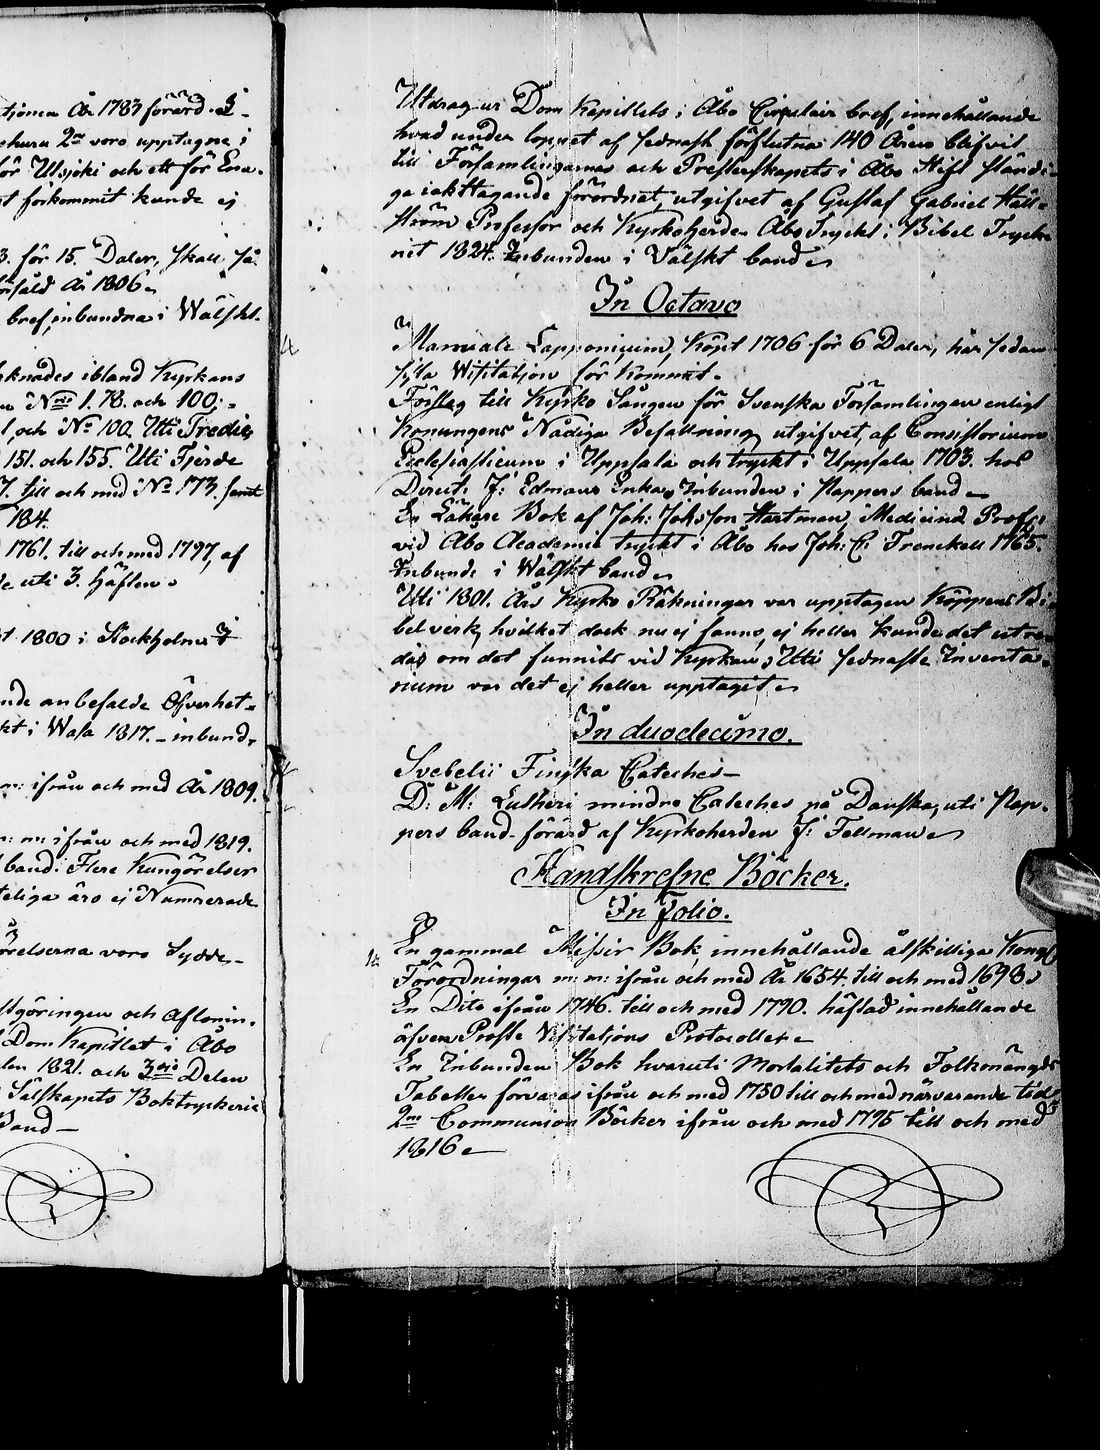 tjonen År 1783 förärd. 3
ehuru 2ne voro upptagne i
för Utsjoki och ett för Ena-
st förkommit kunde ej
3. för 15. Daler, skall så
försåld År 1806
bref, inbundna i Wälskt-
räknades ibland Kyrkans
Nris 1. 78. och 100;
1, och No 100. Uti Tredie
151. och 155. Uti Fjerde
7. till och med No 173. samt
184.
1761. till och med 1797, af
de uti 3. Häften
1800 i Stockholm
nde anbefalde Öfverhet-
kt i Wasa 1817. - inbund-
m: ifrån och med År 1809.
m: m: ifrån och med 1819.
band: Flere Kungörelser
teliga äro ej Numrerade
örelserna voro Sydde-
stgöringen och aflönin-
Dom Kapitlet i Åbo
len 1821. och 3die Delen
Sälskapets Boktryckerie
Band-
Utdrag ur Dom Kapitlets i Åbo Circulair bref, innehållande
hvad under loppet af sednast förflutna 140 Åren blifvit
till Församlingarnas och Presterskapets i Åbo Stift ständi-
ga iakttagande förordnat, utgifvet af Gustaf Gabriel Häll-
ström Professor och Kyrkoherde. Åbo Tryckt i Bibel Trycke-
riet 1824. Inbunden i Wälskt band
In Octavo
Manuale Lapponicum, Köpt 1706 för 6 Daler, har sedan
sista Wisitation för kommit.
Förslag till Kyrko Sången för Svenska Församlingen enligt
Konungens Nådiga Befallning utgifvet, af Consistorium
Ecclesiasticum i Uppsala och tryckt i Uppsala 1703. hos
Direct. J: Edmans Enka, Inbunden i Pappers band
En Läkare Bok af Joh: Johsson Hartman, Medicinæ Profs:
vid Åbo Academie tryckt i Åbo hos Joh. C: Frenckell 1765.
Inbunde i Wälskt band
Uti 1801. Års Kyrko Räkningar var upptagen Köppens Bi-
belverk, hvilket dock nu ej fanns, ej heller kunde det utre-
das om det funnits vid Kyrkan; Uti sednaste Inventa-
rium var det ej heller upptagit
In duodecimo.
Svebelii Finska Cateches-
D: M: Lutheri mindre Cateches på Danska, uti Pap-
pers band förärd af Kyrkoherden J: Fellman
Handskrefne Böcker.
In Folio.
En gammal Missiv Bok, innehållande åtskilliga Kongl
Förordningar m: m: ifrån och med År 1654. till och med 1698.
En Dito ifrån 1746. till och med 1790. häftad innehållande
äfven Profte Visitations Protocoller
En Inbunden Bok hvaruti Mortalitets och Folkmängds
Tabeller förvaras ifrån och med 1750 till och med närvarande tid
2ne Communion Böcker ifrån och med 1795 till och med
1816